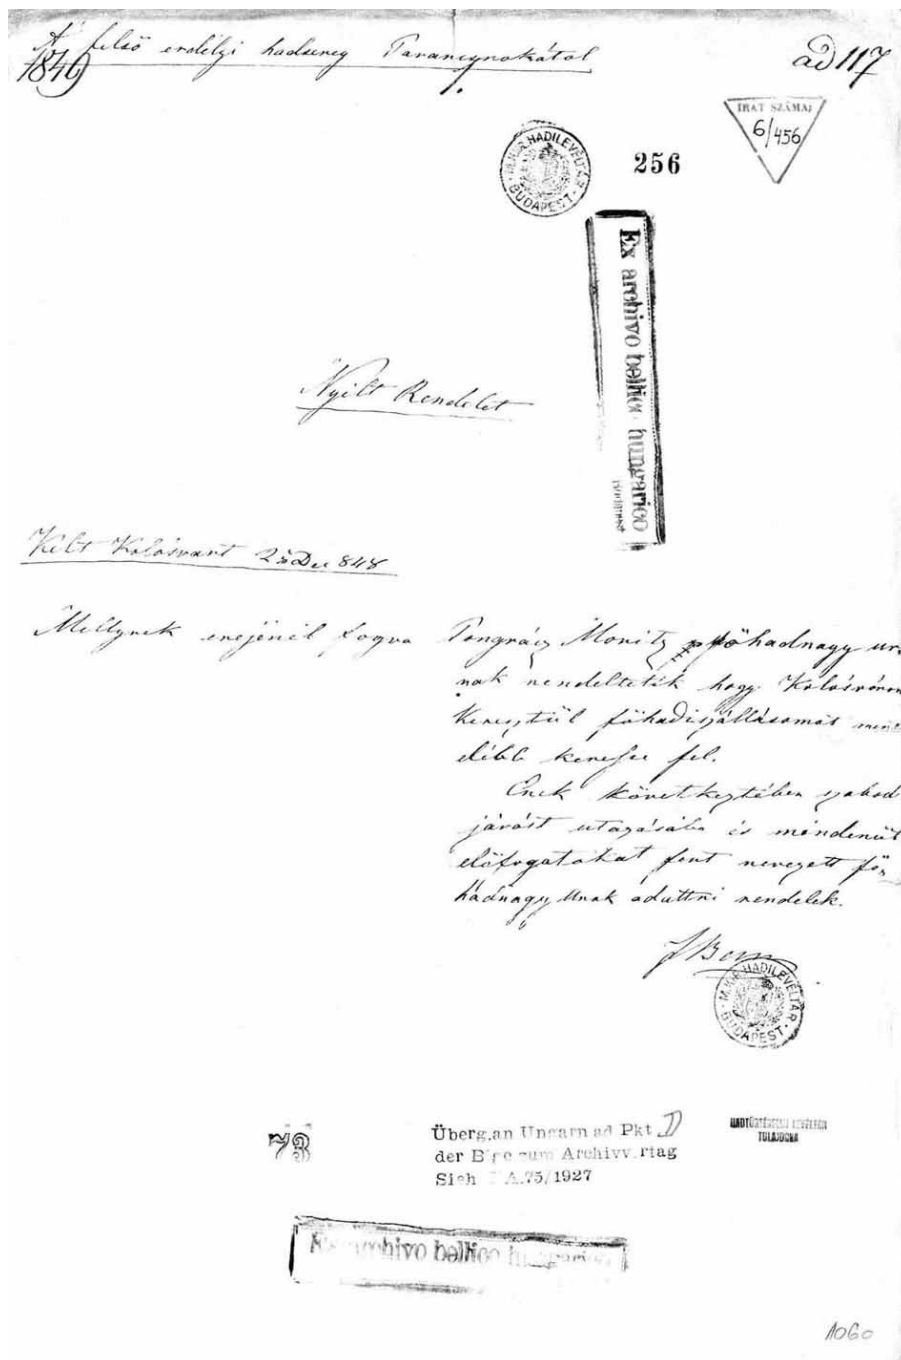 A felső erdélyi hadsereg Parancsnokától
1849
ad 117
IRAT SZÁMA:
6/456
M. KIR. HADILEVÉLTÁR
BUDAPEST
256
Ex archivo bellico hungarico
Budapest
Nyilt Rendelet
Kelt Kolósvart 25 Dec 848
Mellynek erejénél fogva Pongrácz Moritz főhadnagy ur-
nak rendeltetik hogy Kolósváron
keresztül főhadiszállásomat minél
elébb keresse fel.
Enek következtében szabad
járást utazásába és mindenüt
előfogatokat fent nevezett fő-
hadnagy Urnak adattni rendelek.
J Bem
M. KIR. HADILEVÉLTÁR
BUDAPEST
73
Überg. an Ungarn ad Pkt D
der Beil. zum Archivvertrag
Sieh K.A. 75/1927
HADTÖRTÉNELMI LEVÉLTÁR
TULAJDONA
Ex archivo bellico hungarico
1060